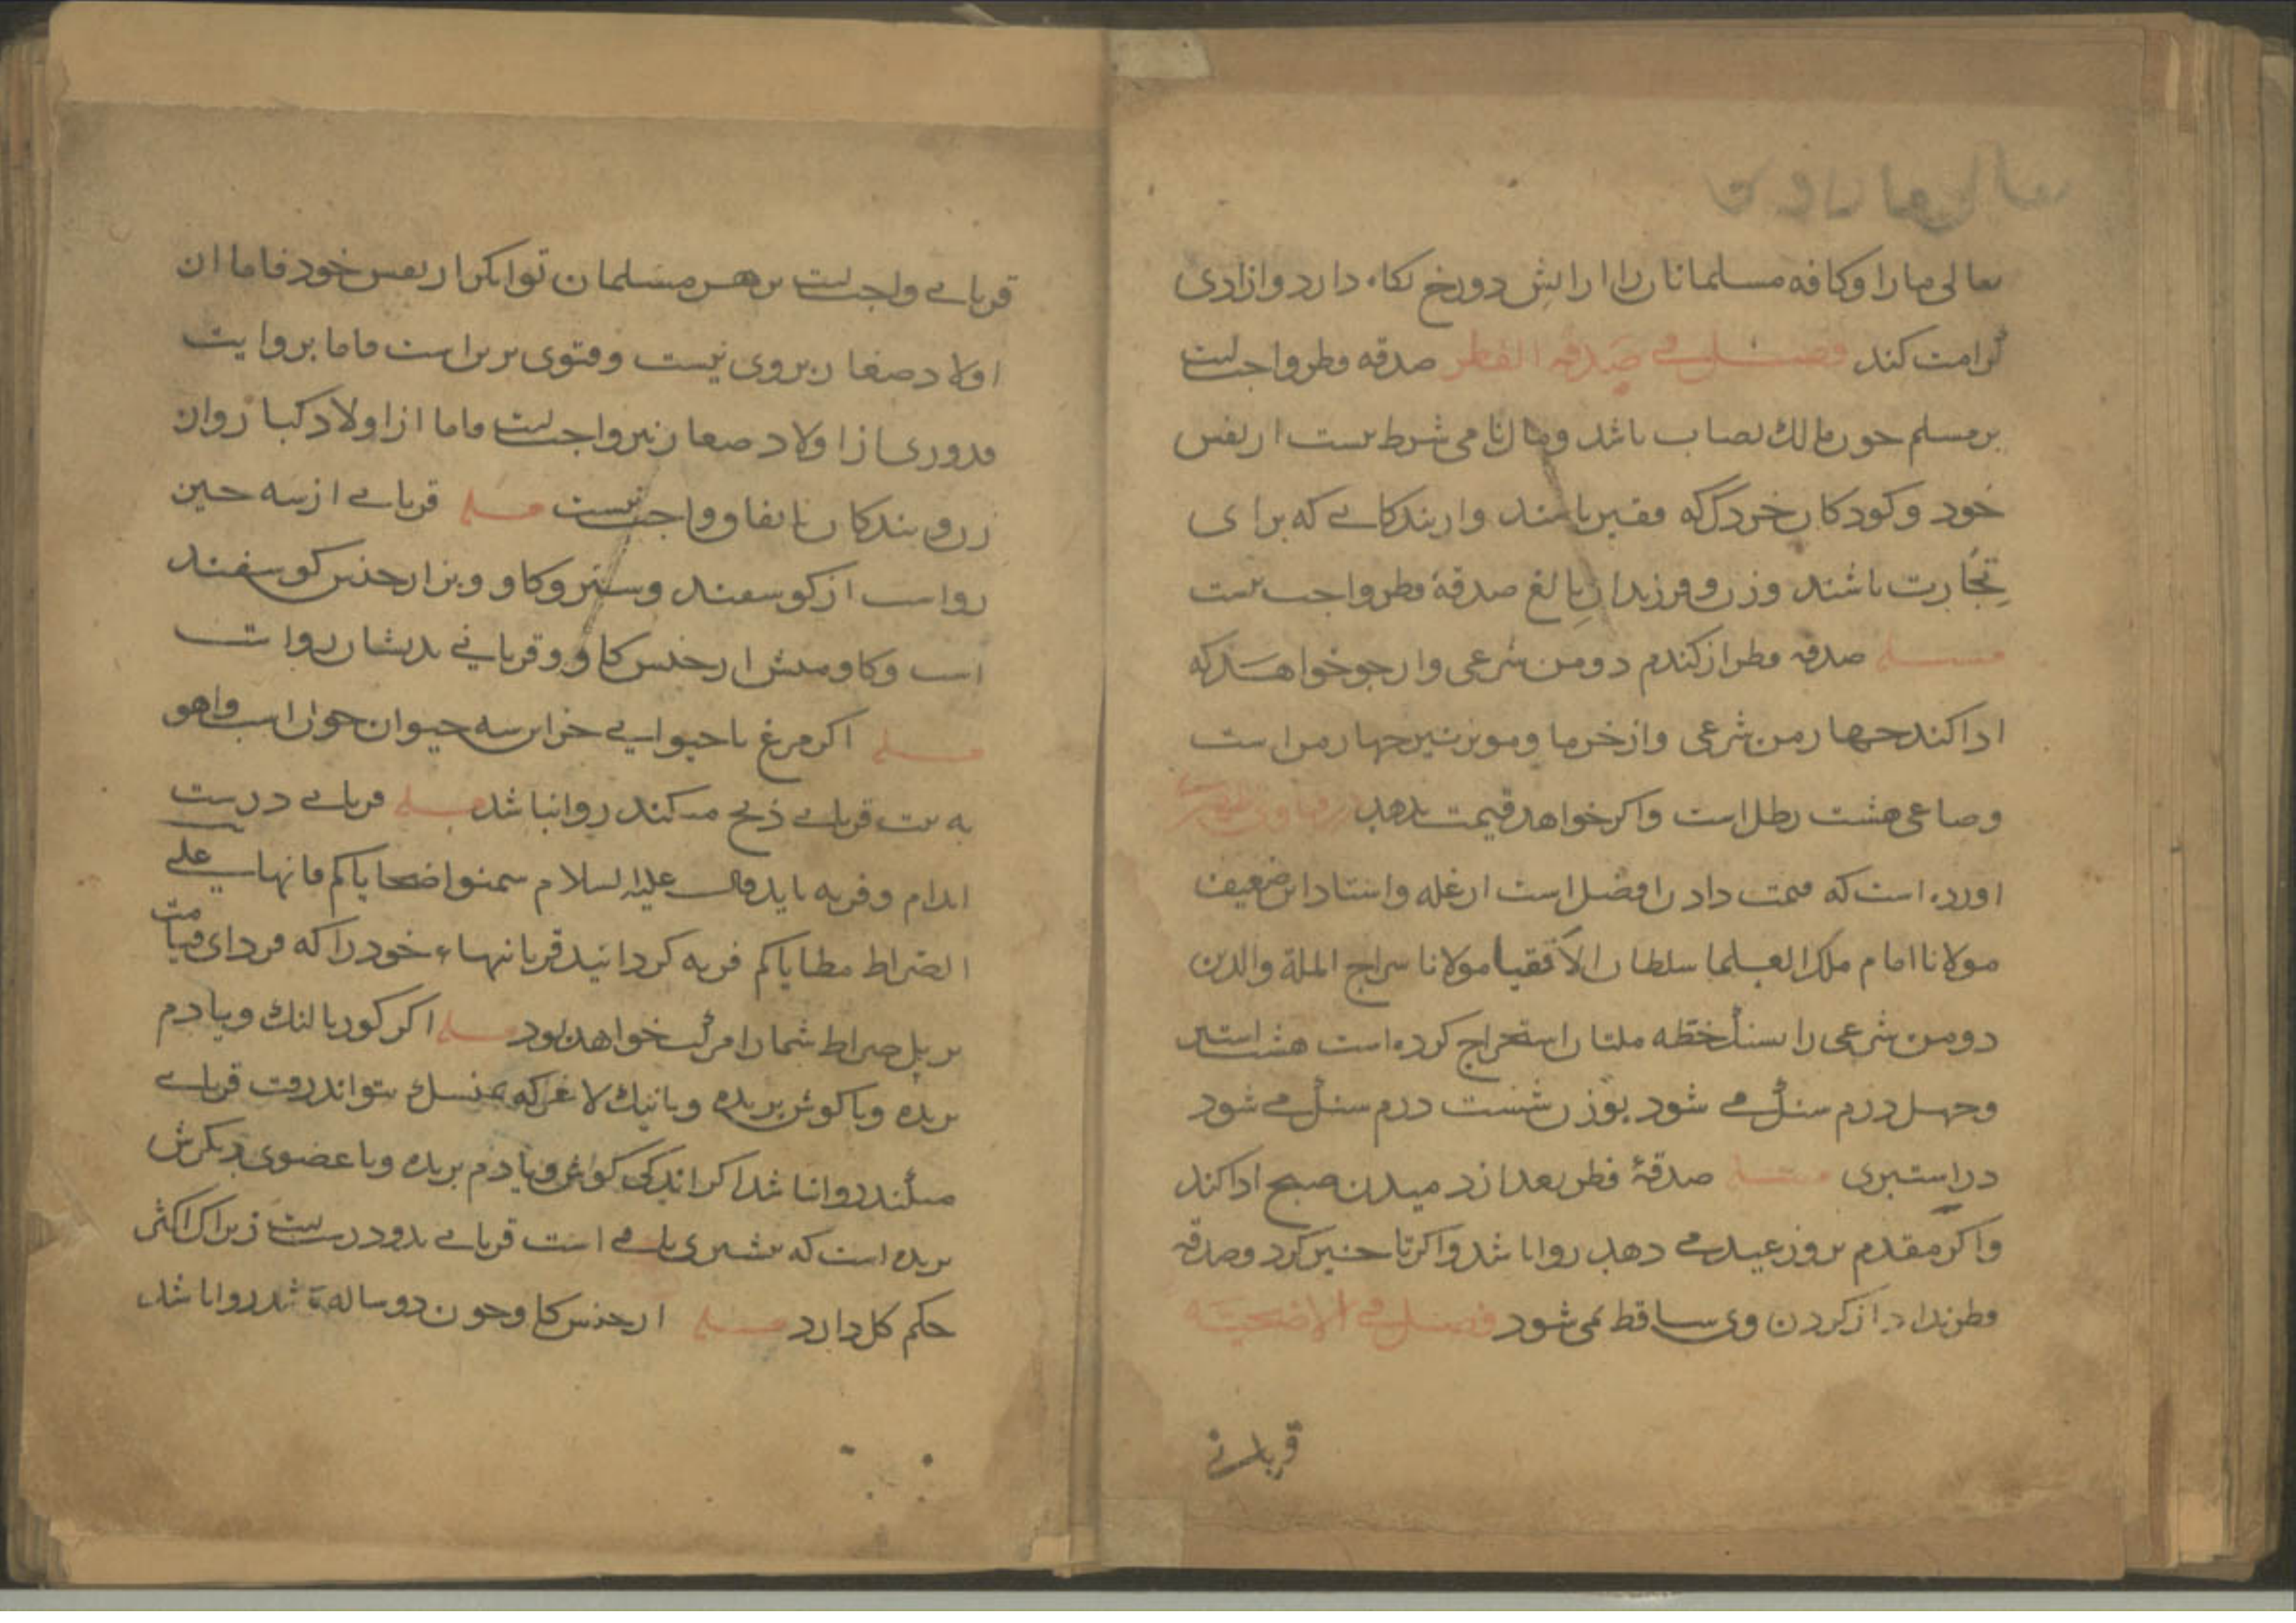 تعالی ما را و کافه مسلمانان را از آتش دوزخ نکاه دارد و ازادی
کرامت کند فصل فی صدقة الفطر صدقه فطر واجبست
بر مسلم چون مالک نصاب باشد و مال نامی شرط نیست از نفس
خود و کودکان خرد که فقیر باشند و از بندکانی که برای
تجارت باشند و زن و فرزندان بالغ صدقۀ فطر واجب نیست
مسله صدقه فطر از کندم دو من شرعی و از جو خواهد که
ادا کند چهار من شرعی و از خرما و مویز نیز چهار من است
و صاعی هشت رطل است و اکر خواهد قیمت بدهد در فتاوی
اورده است که قیمت دادن افضل است از غله و استاد این ضعیف
مولانا امام ملک العلما سلطان الاتقیا مولانا سراج الملة والدین
دو من شرعی را بسنک خطه ملتان استخراج کرده است هشت استیر
و چهل درم سنک می شود بوزن شست درم سنک می شود
در استیری مسله صدقۀ فطر بعد از دمیدن صبح ادا کند
و اکر مقدم بروز عید می دهد روا باشد و اکر تاخیر کرد صدقه
فطر ندا دراز کردن وی ساقط نمی شود فصل فی الاضحیة
قربانی
قربانی واجبست بر هر مسلمان توانکر از نفس خود فاما از
اولاد صغار بر وی نیست و فتوی برین است فاما بروایت
قدوری از اولاد صغار نیز واجبست فاما از اولاد کبار و از
زن و بندکان باتفاق واجب نیست مسله قربانی از سه چیز
رواست از کوسفند و ستر و کاو و بز از جنس کوسفند
است و کاومیش از جنس کاو و قربانی بدیشان رواست
مسله اکر مرغ یا حیوانی جز این سه حیوان چون اسب و اهو
به نیت قربانی ذبح میکند روا نباشد مسله قربانی درست
اندام و فربه باید قال علیه السلام سمنوا ضحایاکم فانها علی
الصراط مطایاکم فربه کردانید قربانیهاء خود را که فردای قیامت
بر پل صراط شما را مرکب خواهد بود مسله اکر کور یا لنک و یا دم
بریده و یا کوش بریده و یا نیک لاغر که بمنسک نتواند رفت قربانی
میکند روا نباشد اکر اندکی کوش و یا دم بریده و یا عضوی دیکرش
بریده است که بیشتری باقی است قربانی بدو درست زیرا که اکثر
حکم کل دارد مسله از جنس کاو چون دو ساله باشد روا باشد